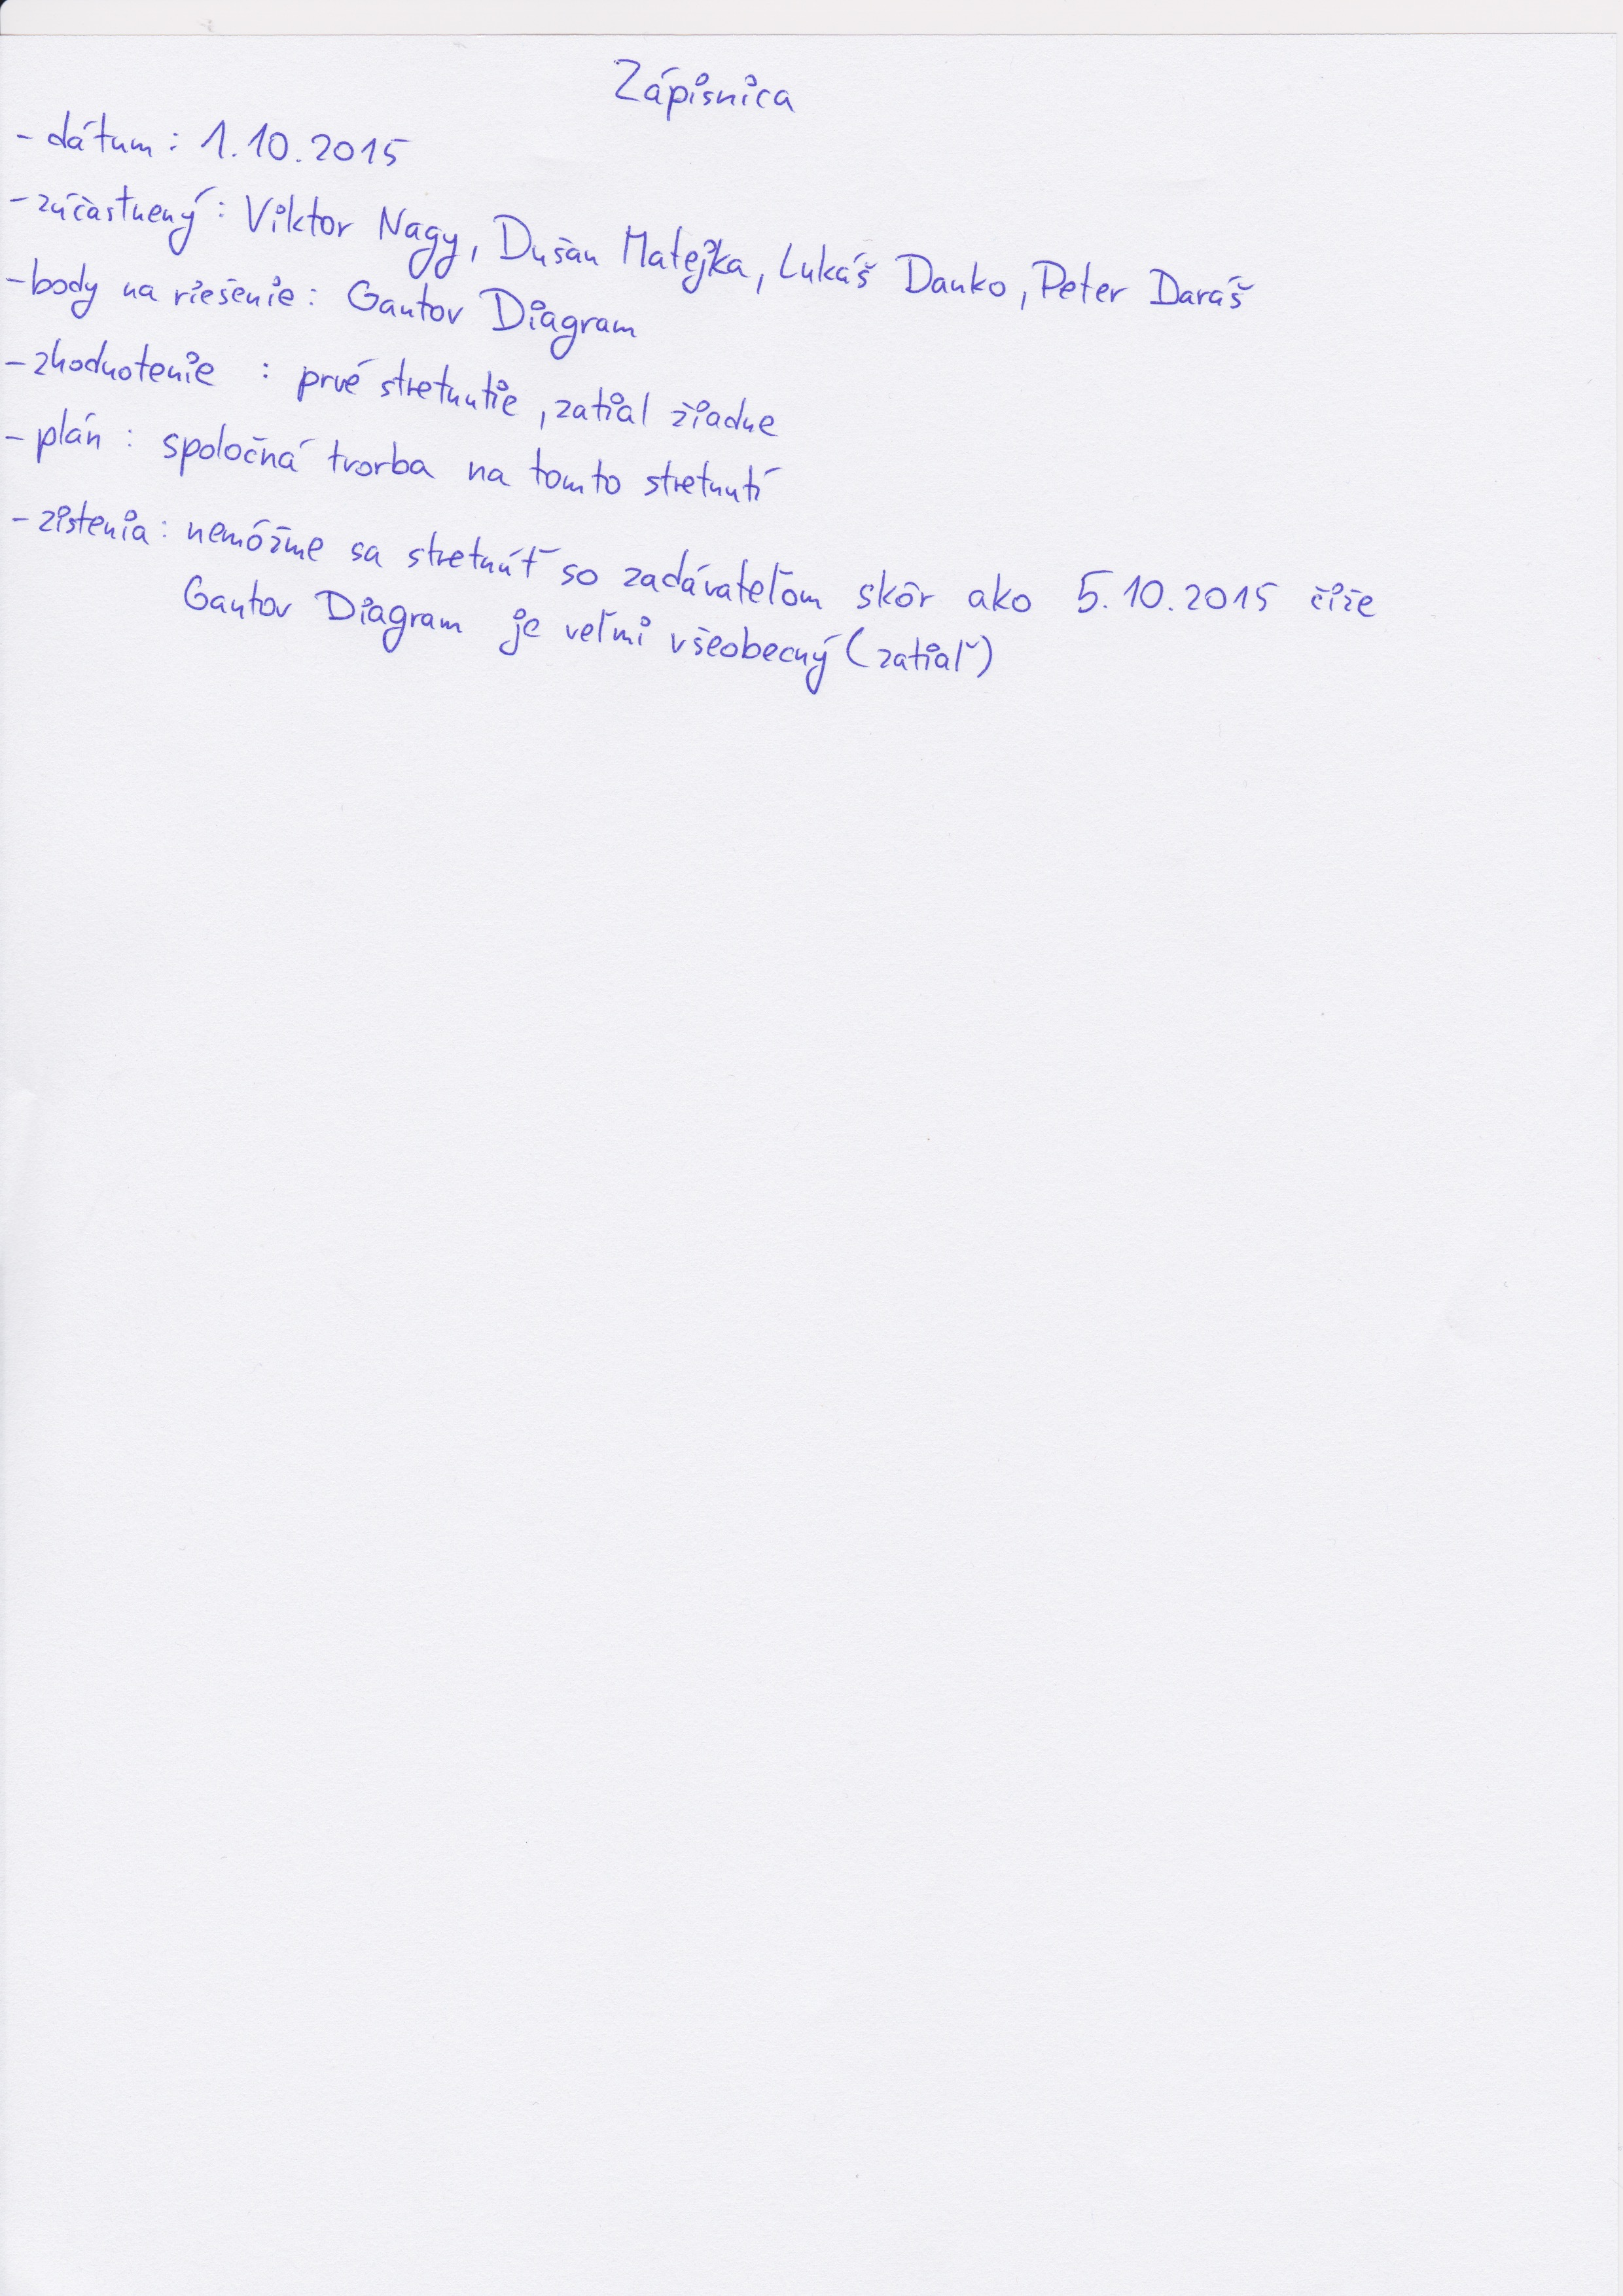 Zápisnica
- dátum : 1.10.2015
- zúčastnený : Viktor Nagy, Dušan Matejka, Lukáš Danko, Peter Daráš
- body na riešenie : Gantov Diagram
- zhodnotenie : prvé stretnutie, zatial žiadne
- plán : spoločná tvorba na tomto stretnutí
- zistenia : nemóžme sa stretnúť so zadávateľom skôr ako 5.10.2015 čiže
Gantov Diagram je veľmi všeobecný (zatiaľ)